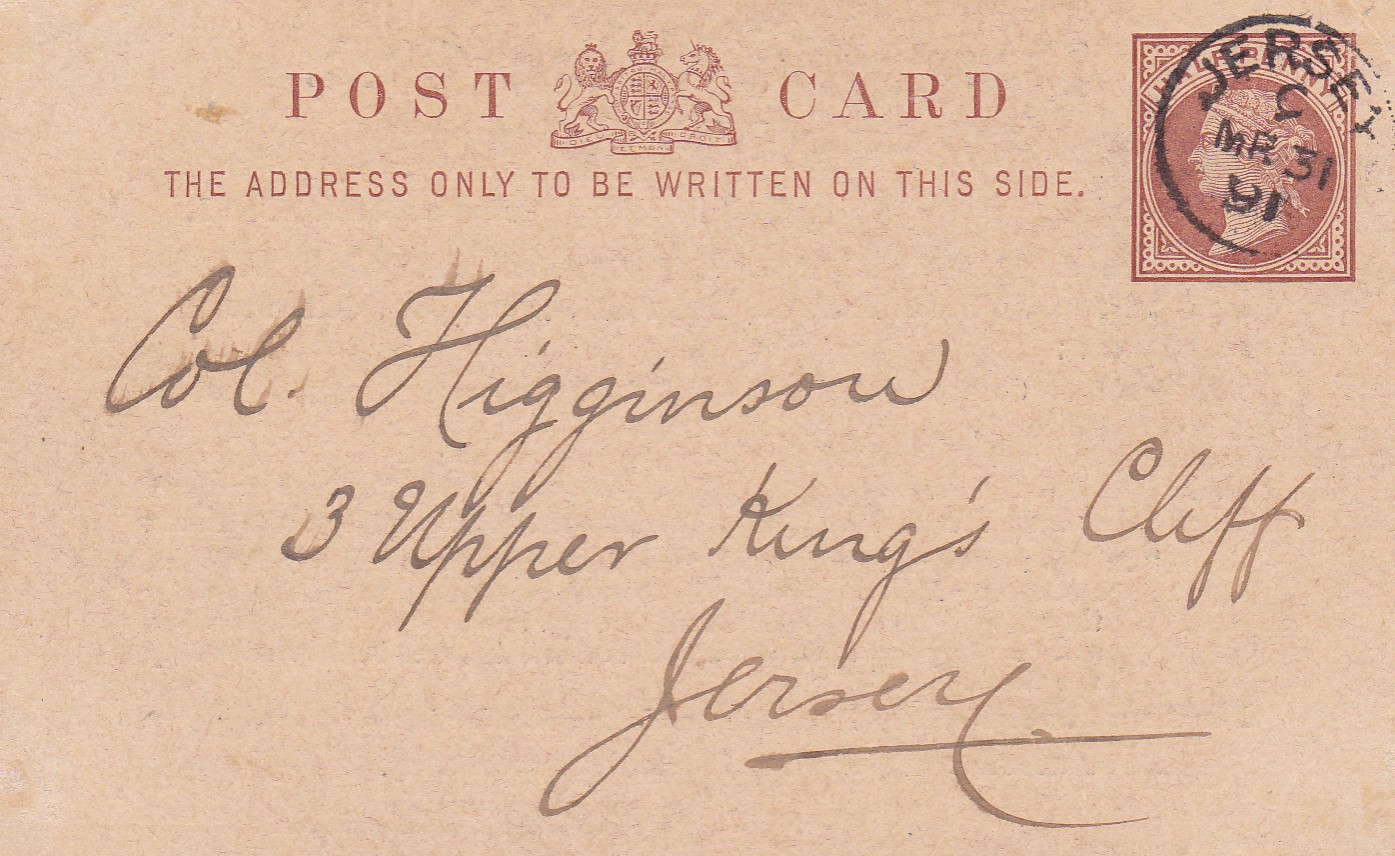 POST CARD
DIEU ET MON DROIT
THE ADDRESS ONLY TO BE WRITTEN ON THIS SIDE.
HALFPENNY
JERSEY
C
MR 31
91
Col. Higginson
3 Upper King's Cliff
Jersey